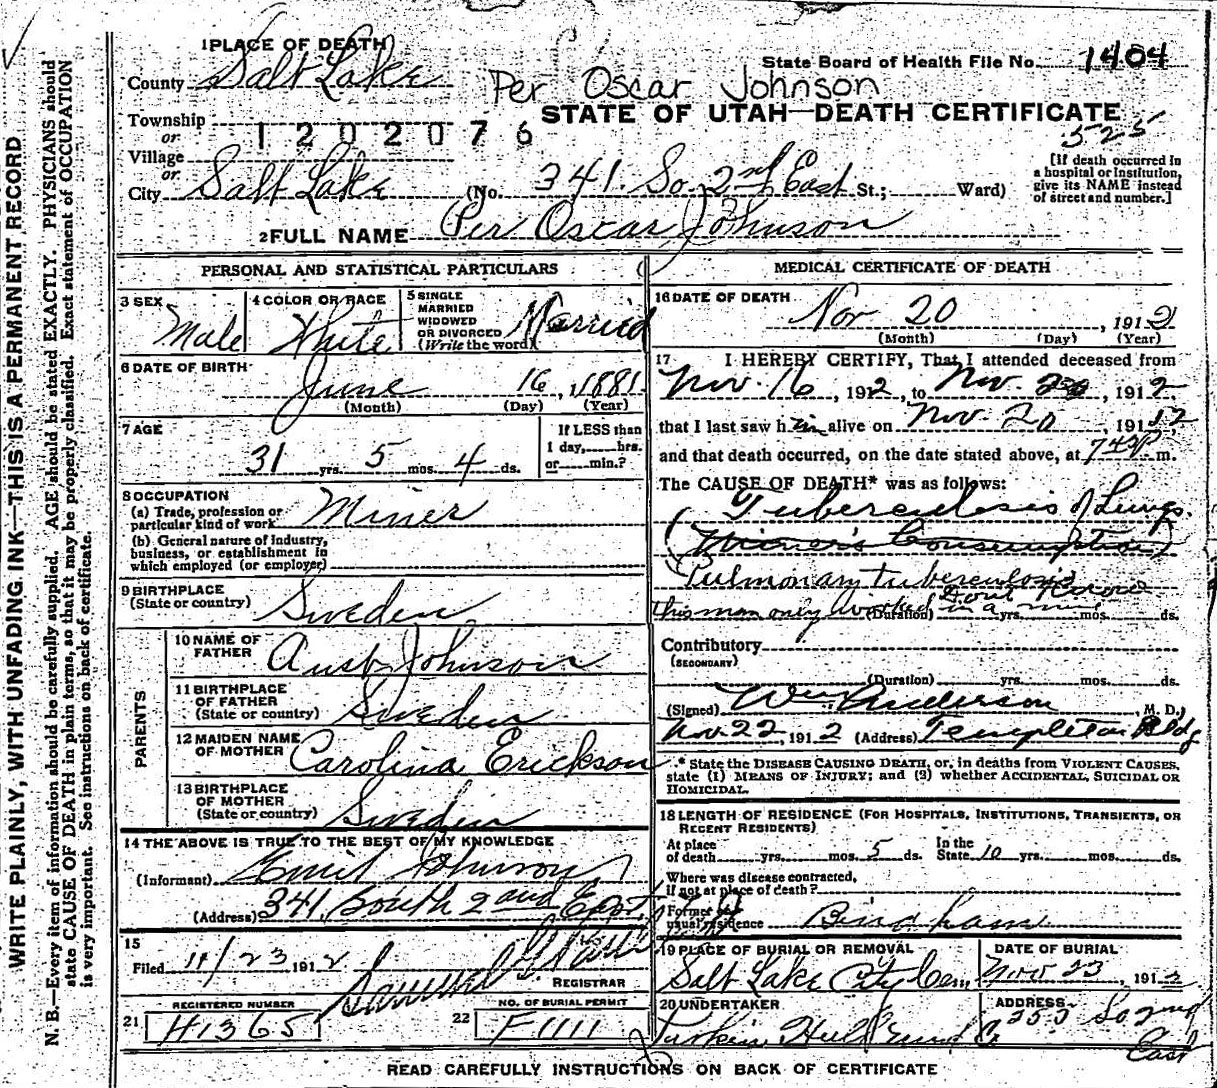 1 PLACE OF DEATH
State Board of Health File No. 1404
County Salt Lake
Per Oscar Johnson
STATE OF UTAH—DEATH CERTIFICATE
Township
or
1202076
525
Village
or
City Salt Lake (No. 341. So. 2nd East St.; Ward)
[If death occurred in a hospital or institution, give its NAME instead of street and number.]
2 FULL NAME Per Oscar Johnson
PERSONAL AND STATISTICAL PARTICULARS
3 SEX Male
4 COLOR OR RACE White
5 SINGLE MARRIED WIDOWED OR DIVORCED (Write the word) Married
6 DATE OF BIRTH June 16, 1881
(Month) (Day) (Year)
7 AGE 31 yrs. 5 mos. 4 ds.
If LESS than 1 day, hrs. or min.?
8 OCCUPATION
(a) Trade, profession or particular kind of work Miner
(b) General nature of industry, business, or establishment in which employed (or employer)
9 BIRTHPLACE
(State or country) Sweden
PARENTS
10 NAME OF FATHER Johnson
11 BIRTHPLACE OF FATHER (State or country) Sweden
12 MAIDEN NAME OF MOTHER Carolina Erickson
13 BIRTHPLACE OF MOTHER (State or country) Sweden
14 THE ABOVE IS TRUE TO THE BEST OF MY KNOWLEDGE
(Informant) Emil Johnson
(Address) 341 South 2nd East
15
Filed 11/23 1912
Samuel G.
REGISTRAR
REGISTERED NUMBER
21 H1365
NO. OF BURIAL PERMIT
22 F1111
MEDICAL CERTIFICATE OF DEATH
16 DATE OF DEATH Nov 20, 1912
(Month) (Day) (Year)
17 I HEREBY CERTIFY, That I attended deceased from
Nov. 16, 1912, to Nov. 20, 1912
that I last saw him alive on Nov. 20, 1912,
and that death occurred, on the date stated above, at 743P m.
The CAUSE OF DEATH* was as follows:
Tuberculosis of Lungs.
(Miner's Consumption)
Pulmonary tuberculosis
this man only worked in a mine
(Duration) yrs. mos. ds.
Contributory
(SECONDARY)
(Duration) yrs. mos. ds.
(Signed) Wm Anderson, M. D.
Nov. 22, 1912 (Address) Templeton Bldg
* State the DISEASE CAUSING DEATH, or, in deaths from VIOLENT CAUSES, state (1) MEANS OF INJURY; and (2) whether ACCIDENTAL, SUICIDAL OR HOMICIDAL.
18 LENGTH OF RESIDENCE (FOR HOSPITALS, INSTITUTIONS, TRANSIENTS, OR RECENT RESIDENTS)
At place of death yrs. mos. 5 ds. In the State 10 yrs. mos. ds.
Where was disease contracted, if not at place of death?
Former or usual residence Bingham
19 PLACE OF BURIAL OR REMOVAL
Salt Lake City Cem
DATE OF BURIAL
Nov 23, 1912
20 UNDERTAKER
ADDRESS
253 So 2nd East
READ CAREFULLY INSTRUCTIONS ON BACK OF CERTIFICATE
WRITE PLAINLY, WITH UNFADING INK—THIS IS A PERMANENT RECORD
N. B.—Every item of information should be carefully supplied. AGE should be stated EXACTLY. PHYSICIANS should
state CAUSE OF DEATH in plain terms, so that it may be properly classified. Exact statement of OCCUPATION
is very important. See instructions on back of certificate.